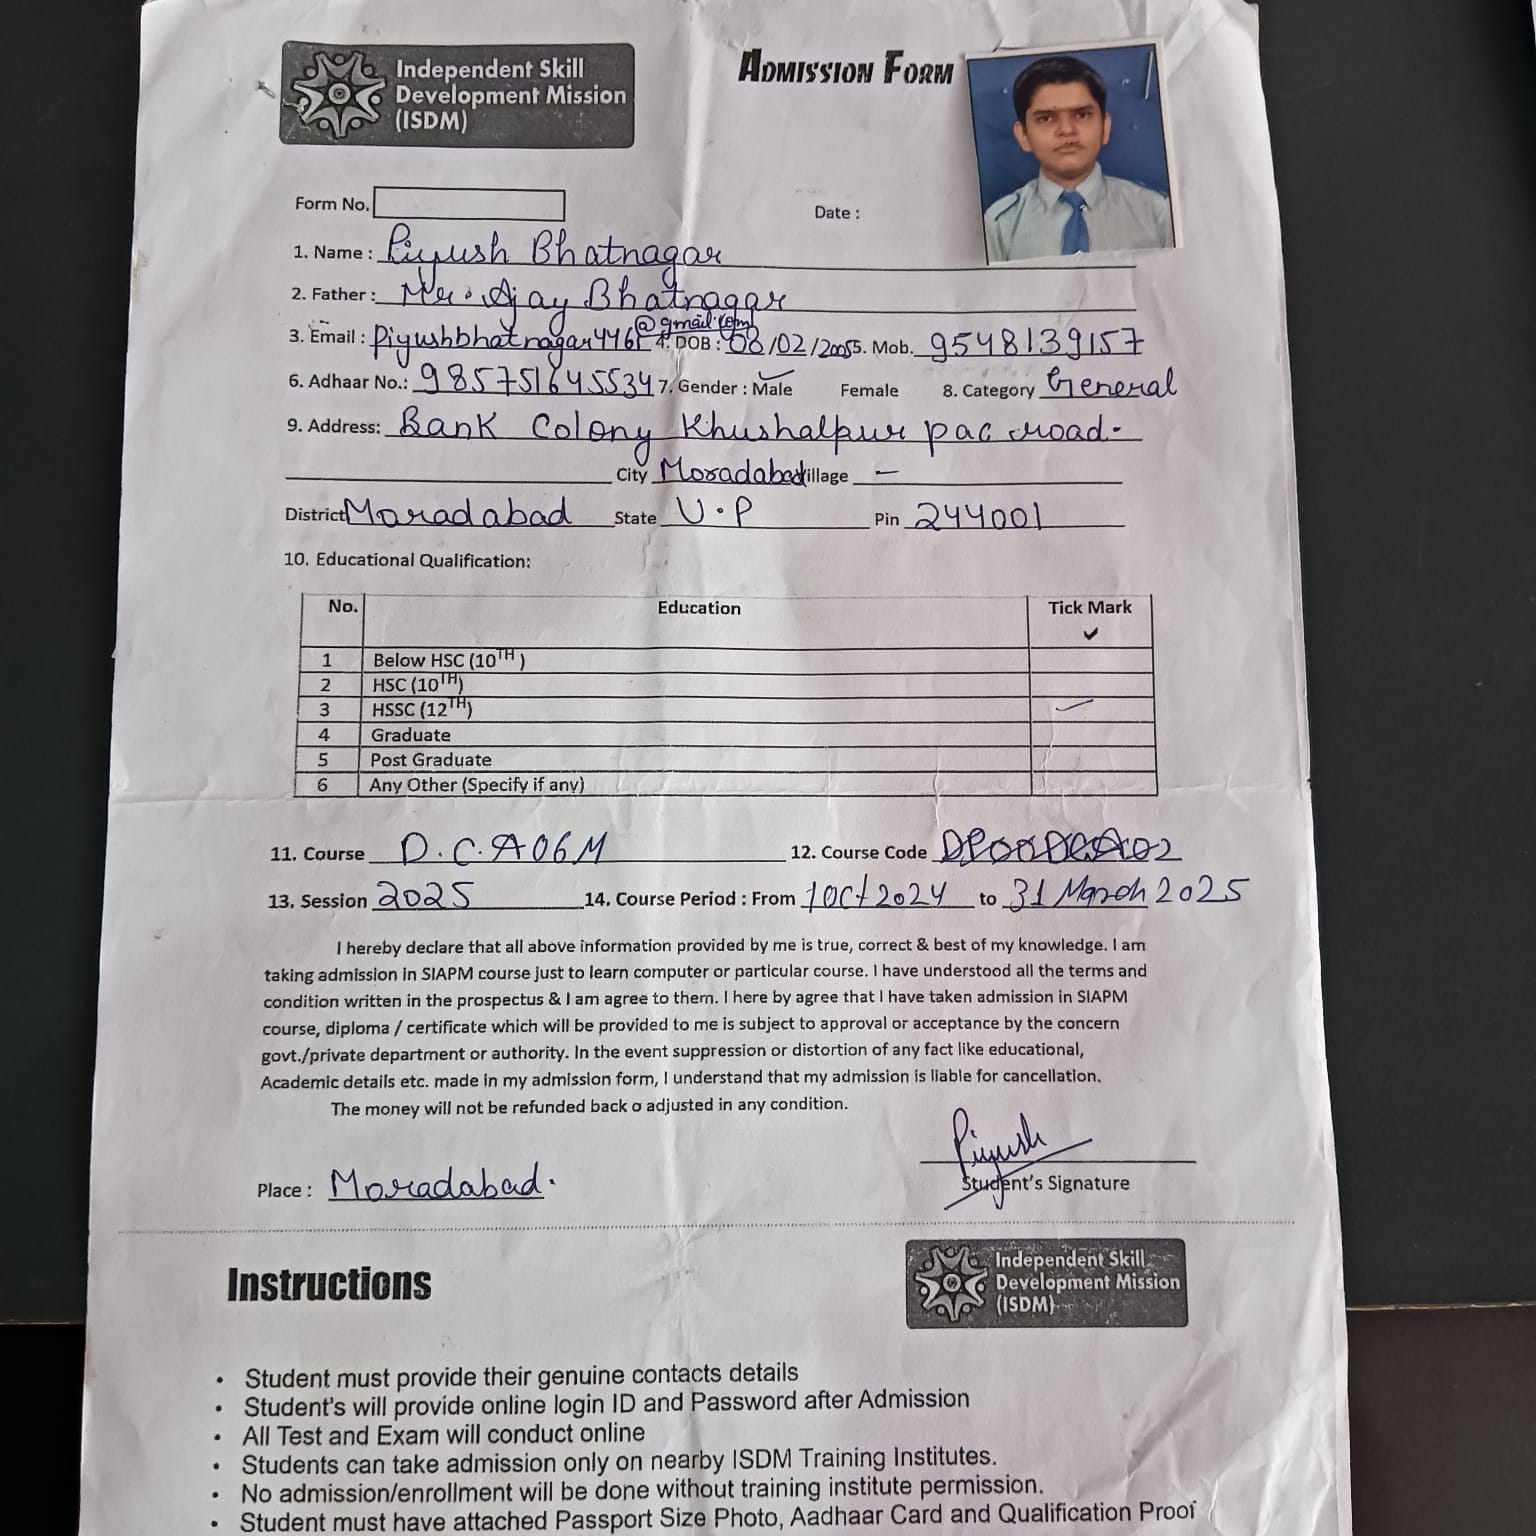 Independent Skill
Development Mission
(ISDM)
ADMISSION FORM
Form No.
Date :
1. Name : Piyush Bhatnagar
2. Father : Mr. Ajay Bhatnagar
3. Email : Piyushbhatnagar446 @gmail.com 4. DOB : 08/02/2005 5. Mob. 9548139157
6. Adhaar No.: 985751645534 7. Gender : Male Female 8. Category General
9. Address: Bank Colony Khushalpur pac road.
City Moradabad Village —
District Moradabad State U.P Pin 244001
10. Educational Qualification:
No. Education Tick Mark
✓
1 Below HSC (10TH )
2 HSC (10TH)
3 HSSC (12TH) ✓
4 Graduate
5 Post Graduate
6 Any Other (Specify if any)
11. Course D.C.A06M 12. Course Code
13. Session 2025 14. Course Period : From 1 Oct 2024 to 31 March 2025
I hereby declare that all above information provided by me is true, correct & best of my knowledge. I am
taking admission in SIAPM course just to learn computer or particular course. I have understood all the terms and
condition written in the prospectus & I am agree to them. I here by agree that I have taken admission in SIAPM
course, diploma / certificate which will be provided to me is subject to approval or acceptance by the concern
govt./private department or authority. In the event suppression or distortion of any fact like educational,
Academic details etc. made in my admission form, I understand that my admission is liable for cancellation.
The money will not be refunded back o adjusted in any condition.
Piyush
Place : Moradabad. Student's Signature
Independent Skill
Development Mission
(ISDM)
Instructions
• Student must provide their genuine contacts details
• Student's will provide online login ID and Password after Admission
• All Test and Exam will conduct online
• Students can take admission only on nearby ISDM Training Institutes.
• No admission/enrollment will be done without training institute permission.
• Student must have attached Passport Size Photo, Aadhaar Card and Qualification Proof